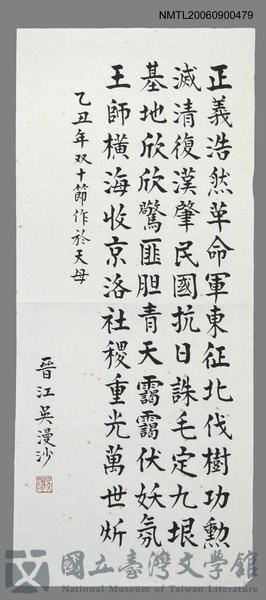 NMTL20060900479
正義浩然革命軍東征北伐樹功勲
滅清復漢肇民國抗日誅毛定九垠
基地欣欣驚匪胆青天靄靄伏妖氛
王師橫海收京洛社稷重光萬世炘
乙丑年双十節作於天母
晉江吳漫沙
國立臺灣文學館
National Museum of Taiwan Literature